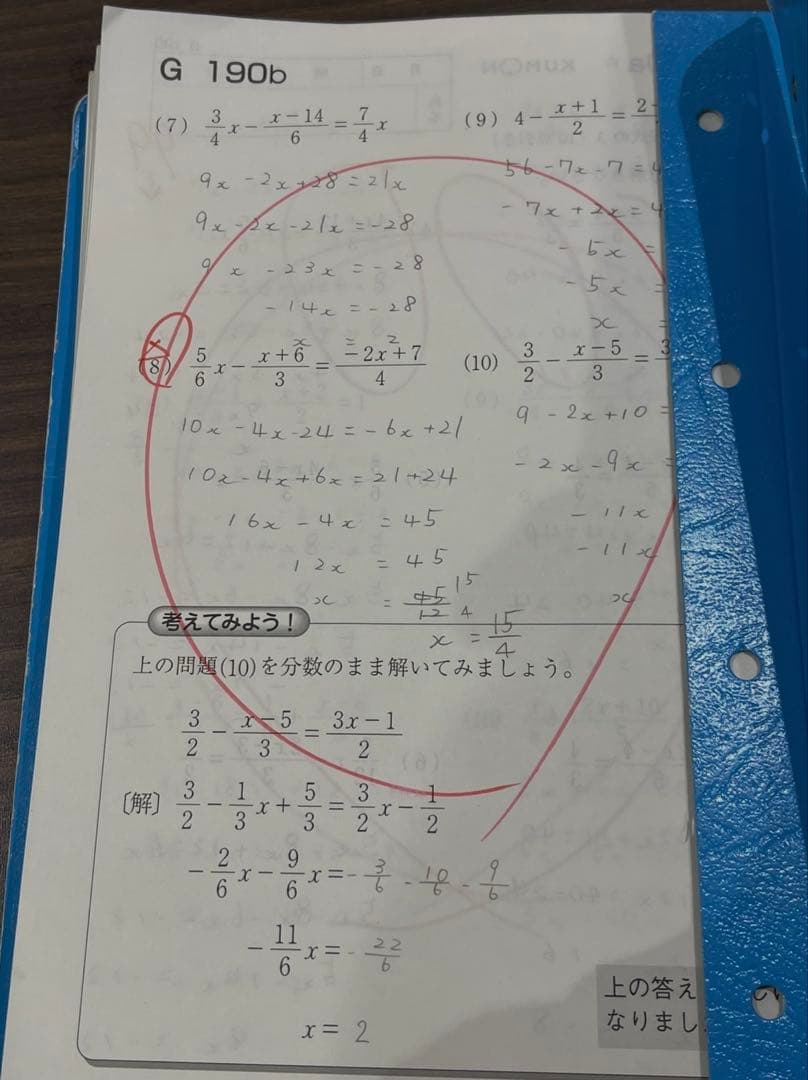 G 190b
(7) 3/4 x - (x-14)/6 = 7/4 x
9x - 2x + 28 = 21x
9x - 2x - 21x = -28
9x - 23x = -28
-14x = -28
x = 2
(8) 5/6 x - (x+6)/3 = (-2x+7)/4
10x - 4x - 24 = -6x + 21
10x - 4x + 6x = 21 + 24
16x - 4x = 45
12x = 45
x = 45/12 15 4
x = 15/4
(9) 4 - (x+1)/2 = 2
56 - 7x - 7 = 4
-7x + 2x = 4
-5x =
-5x =
x =
(10) 3/2 - (x-5)/3 = 3
9 - 2x + 10 =
-2x - 9x =
-11x
-11x
x
考えてみよう!
上の問題(10)を分数のまま解いてみましょう。
3/2 - (x-5)/3 = (3x-1)/2
〔解〕 3/2 - 1/3 x + 5/3 = 3/2 x - 1/2
-2/6 x - 9/6 x = -3/6 - 10/6 - 9/6
-11/6 x = -22/6
x = 2
上の答え
なりまし